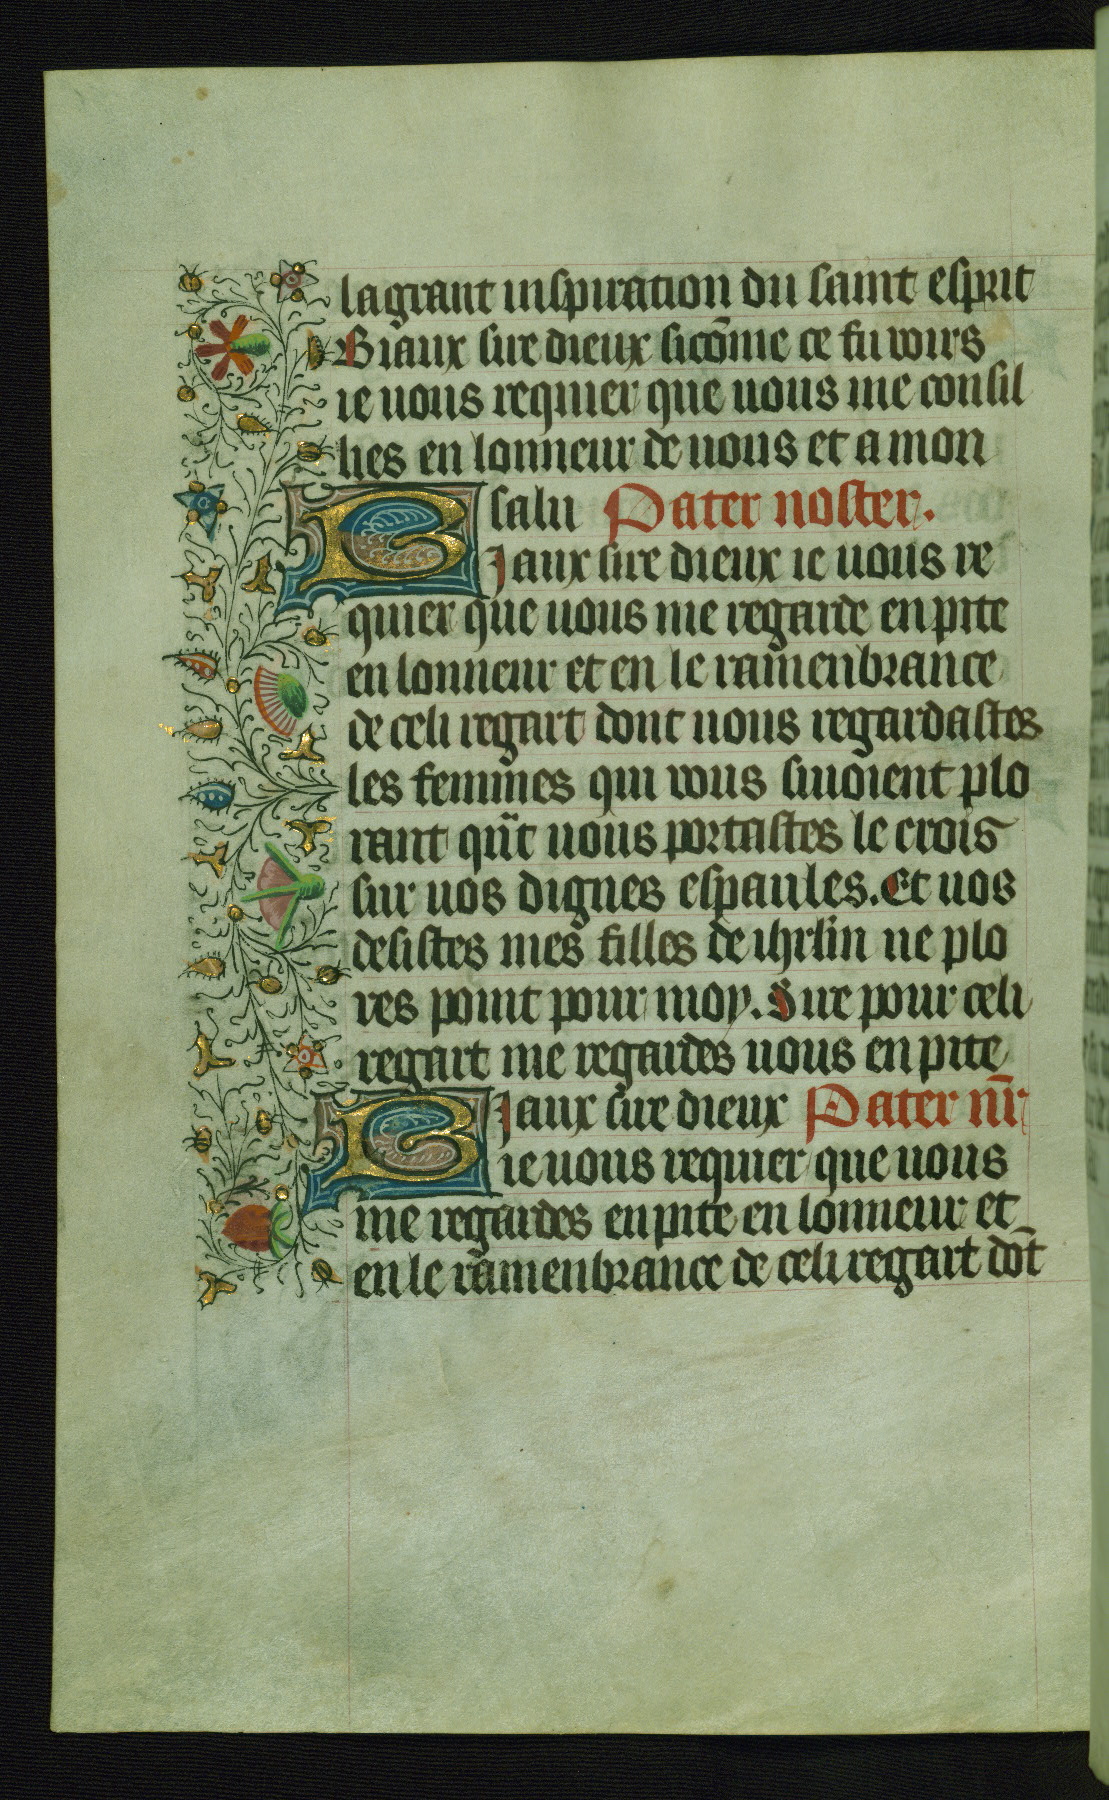 la grant inspiration du saint esprit
Biaux sire dieux sicōme ce fu voirs
ie uous requier que uous me consil
lies en lonneur de uous et a mon
salu Pater noster.
Biaux sire dieux ie uous re
quier que uous me regarde en pite
en lonneur et en le ramenbrance
de celi regart dont uous regardastes
les femmes qui vous siuoient plo
rant qūt uous portastes le crois
sur uos dignes espaules. Et uos
desistes mes filles de ihrlm̄ ne plo
res point pour moy. Sire pour celi
regart me regardes uous en pite
Biaux sire dieux Pater nr̄
ie uous requier que uous
me regardes en pite en lonneur et
en le ramenbrance de celi regart dōt